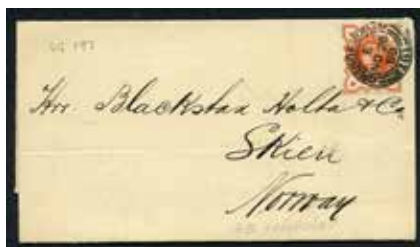 SG 197
Hrr. Blackstad Holta & Co
Skien
Norway